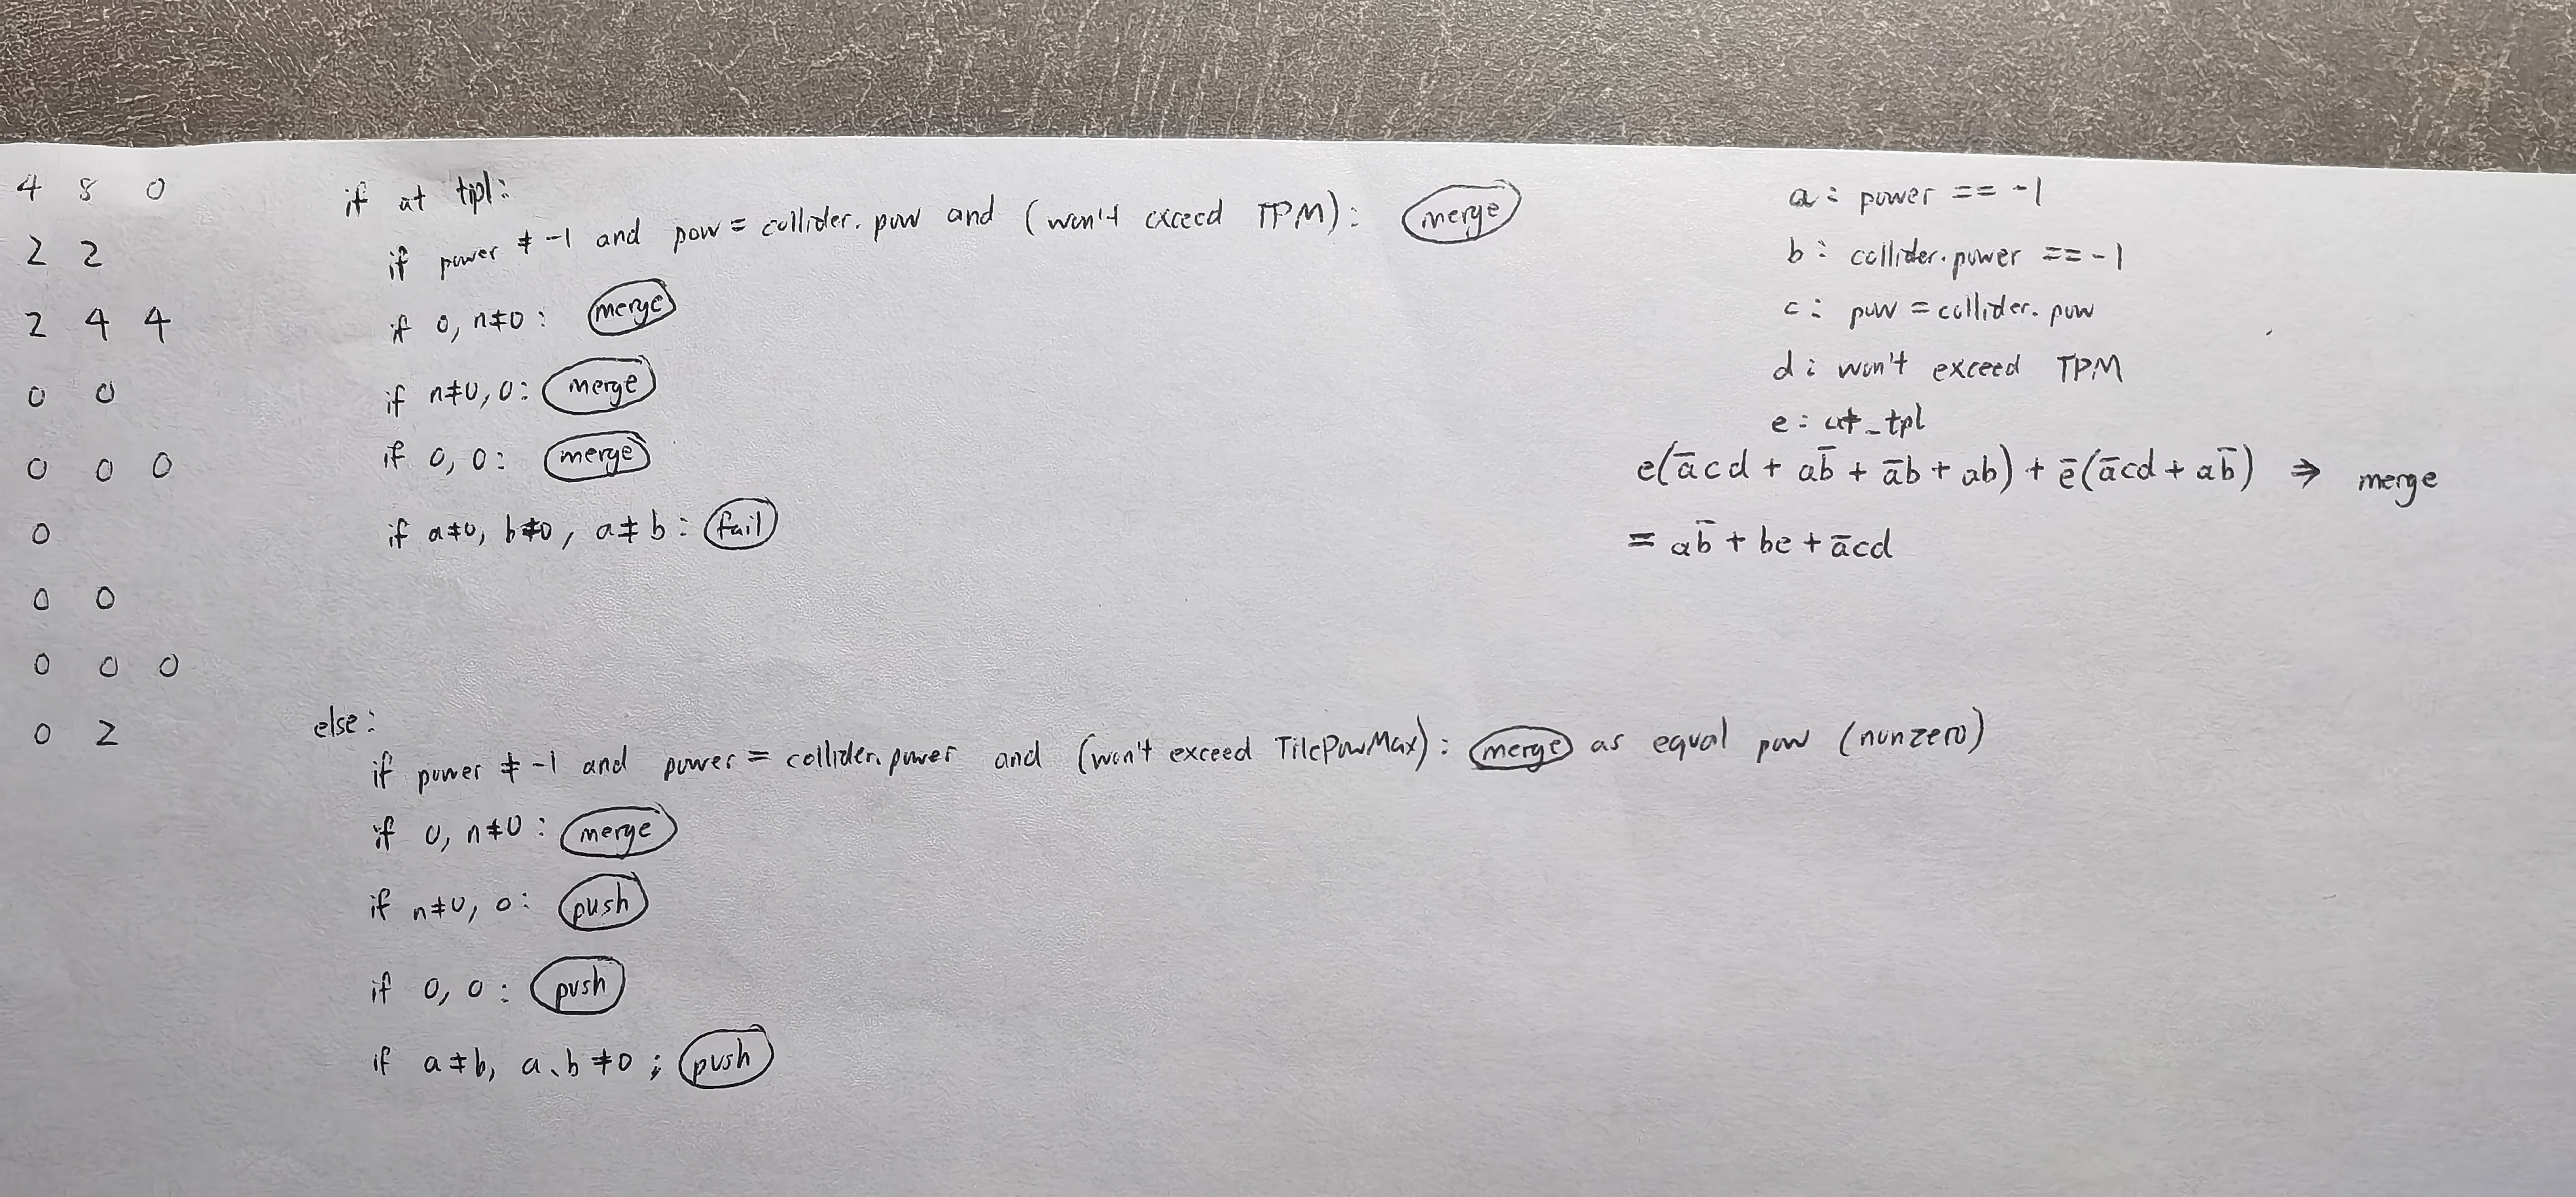 4 8 0
2 2
2 4 4
0 0
0 0 0
0
0 0
0 0 0
0 2
if at tpl:
if power ≠ -1 and pow = collider.pow and (won't exceed TPM): merge
if 0, n≠0: merge
if n≠0, 0: merge
if 0, 0: merge
if a≠0, b≠0, a≠b: fail
else:
if power ≠ -1 and power = collider.power and (won't exceed TilePowMax): merge as equal pow (nonzero)
if 0, n≠0: merge
if n≠0, 0: push
if 0, 0: push
if a≠b, a、b≠0: push
a: power == -1
b: collider.power == -1
c: pow = collider.pow
d: won't exceed TPM
e: at_tpl
e(a̅cd + ab̅ + a̅b + ab) + e̅(a̅cd + ab̅) ⇒ merge
= ab̅ + be + a̅cd